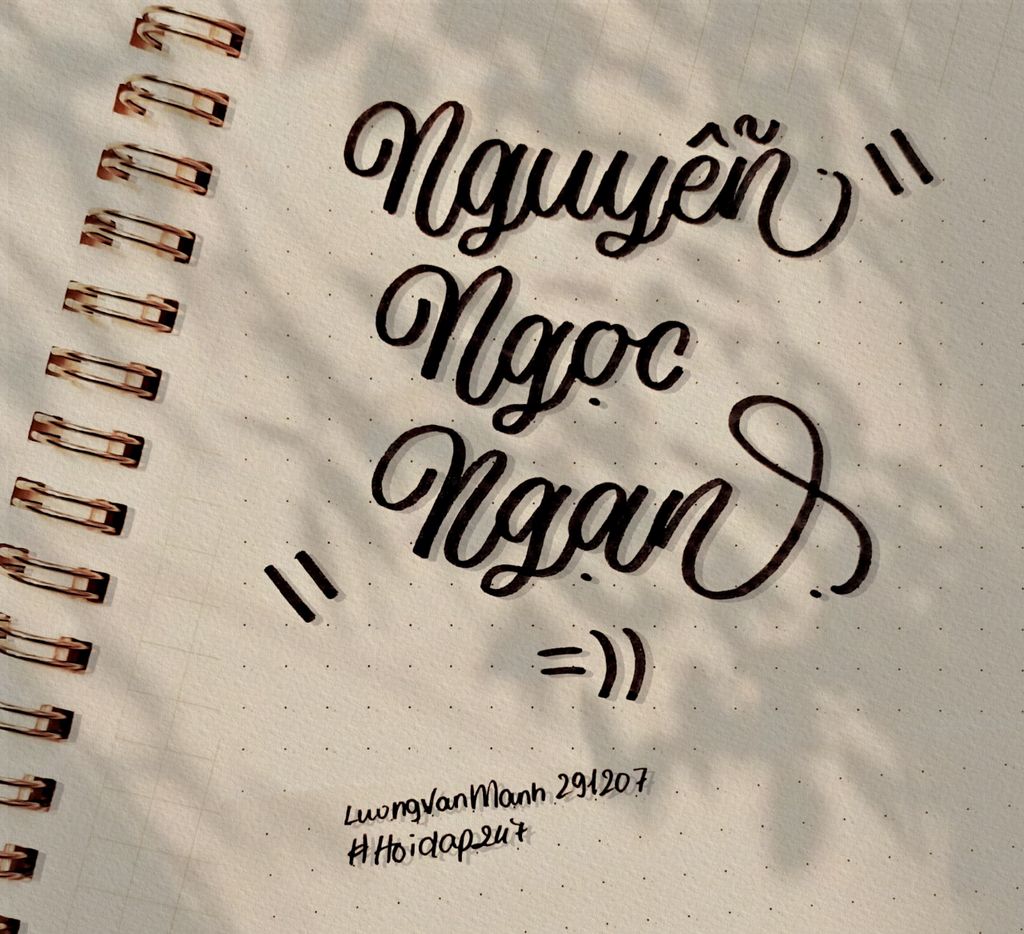 Nguyễn
Ngọc
Ngạn
=))
LuongVanManh 291207
#Hoidap247